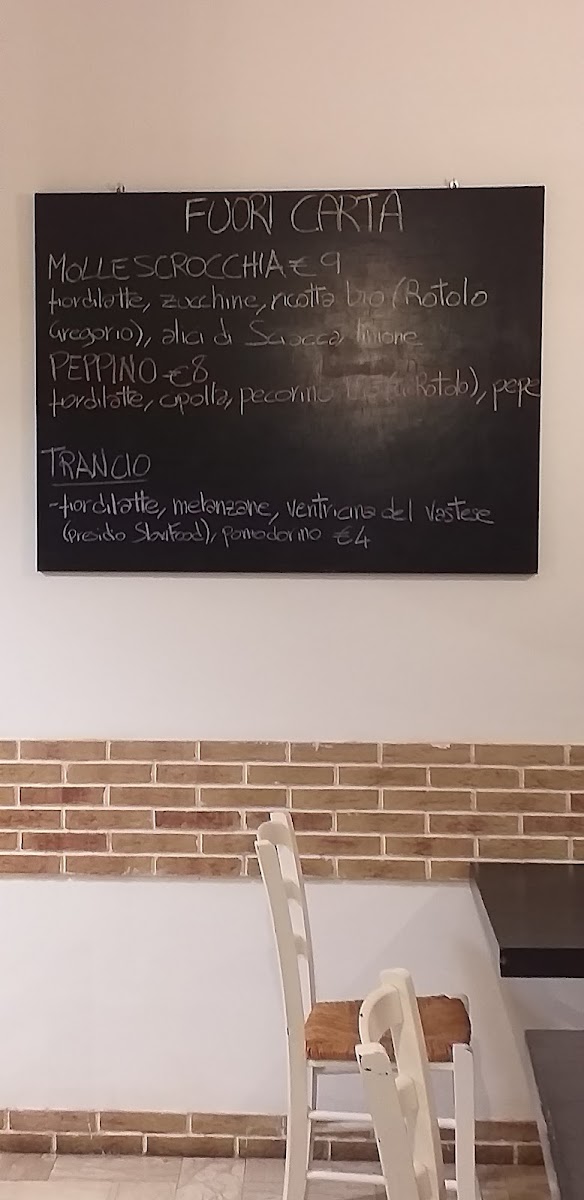 FUORI CARTA
MOLLESCROCCHIA €9
fiordilatte, zucchine, ricotta bio (Rotolo
Gregorio), alici di Sciacca, limone
PEPPINO €8
fiordilatte, cipolla, pecorino Rotolo), pepe
TRANCIO
-fiordilatte, melanzane, ventricina del vastese
(presidio SlowFood), pomodorino €4